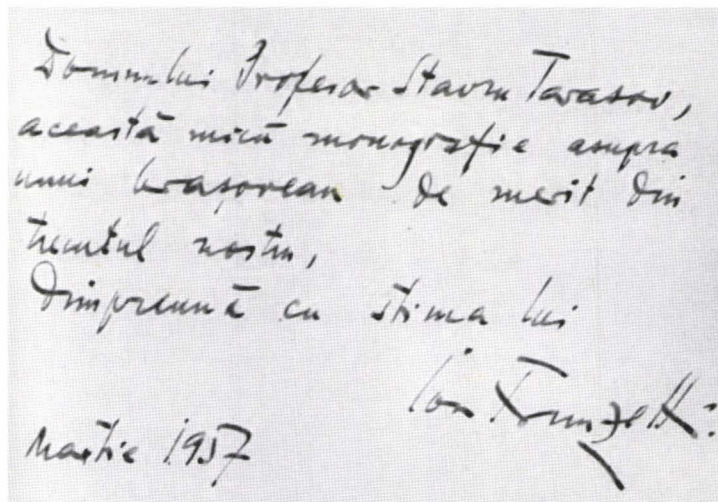 Domnului Profesor Stavru Tarasov,
această mică monografie asupra
unui brașovean de merit din
trecutul nostru,
Dimpreună cu stima lui
Ion Frunzetti
Martie 1957